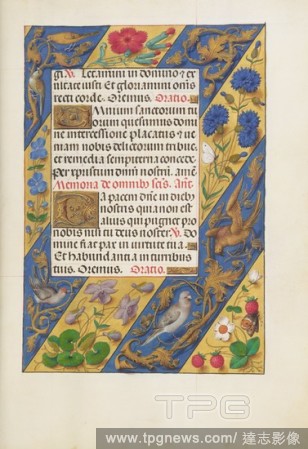 gi. V. Letamini in domino et ex
ultate iusti. Et gloriamini oms
recti corde. Oremus. Oratio.
Omnium sanctorum tu
orum quesumus domi
ne intercessione placatus et ve
niam nobis delictorum tribue:
et remedia sempiterna concede.
Per xpristum dnm nostrum. amen
Memoria de omnibus scis. Ant.
Da pacem dne in dieb9
nostris quia non est
alius qui pugnet pro
nobis nisi tu deus noster. V. Do
mine fiat pax in virtute tua.
Et habundantia in turribus
tuis. Oremus. Oratio.
TPG
www.tpgnews.com/ 達志影像